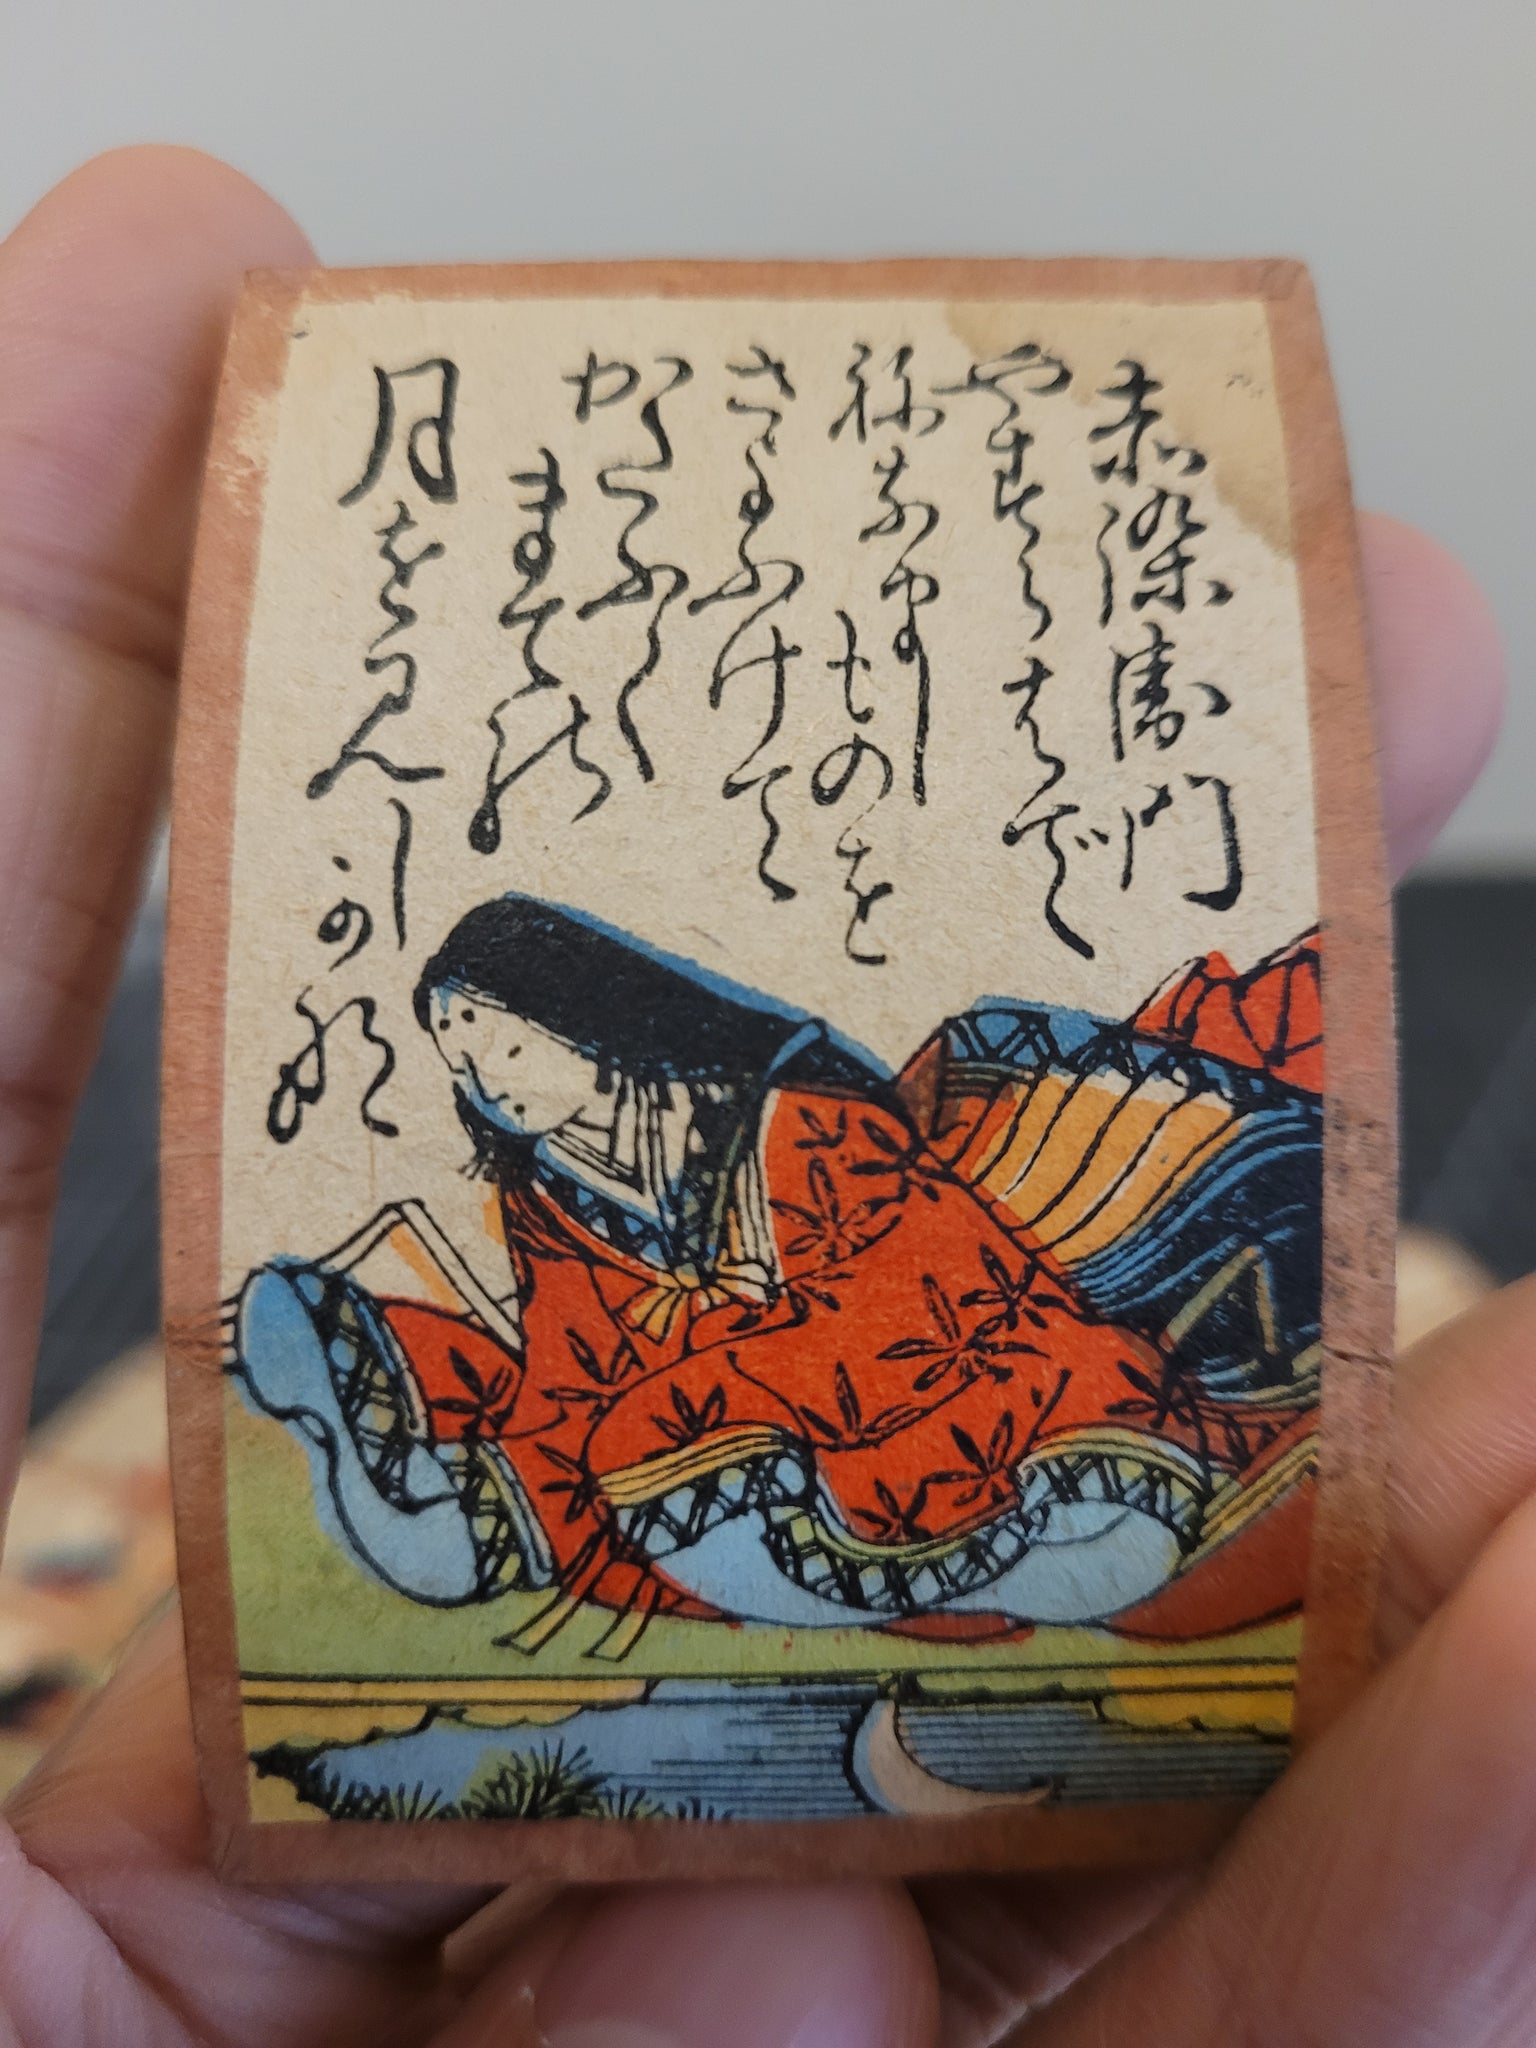 赤染衛門
やすらはで
ねなまし
ものを
さよふけて
かたふく
までの
月を見し
かな